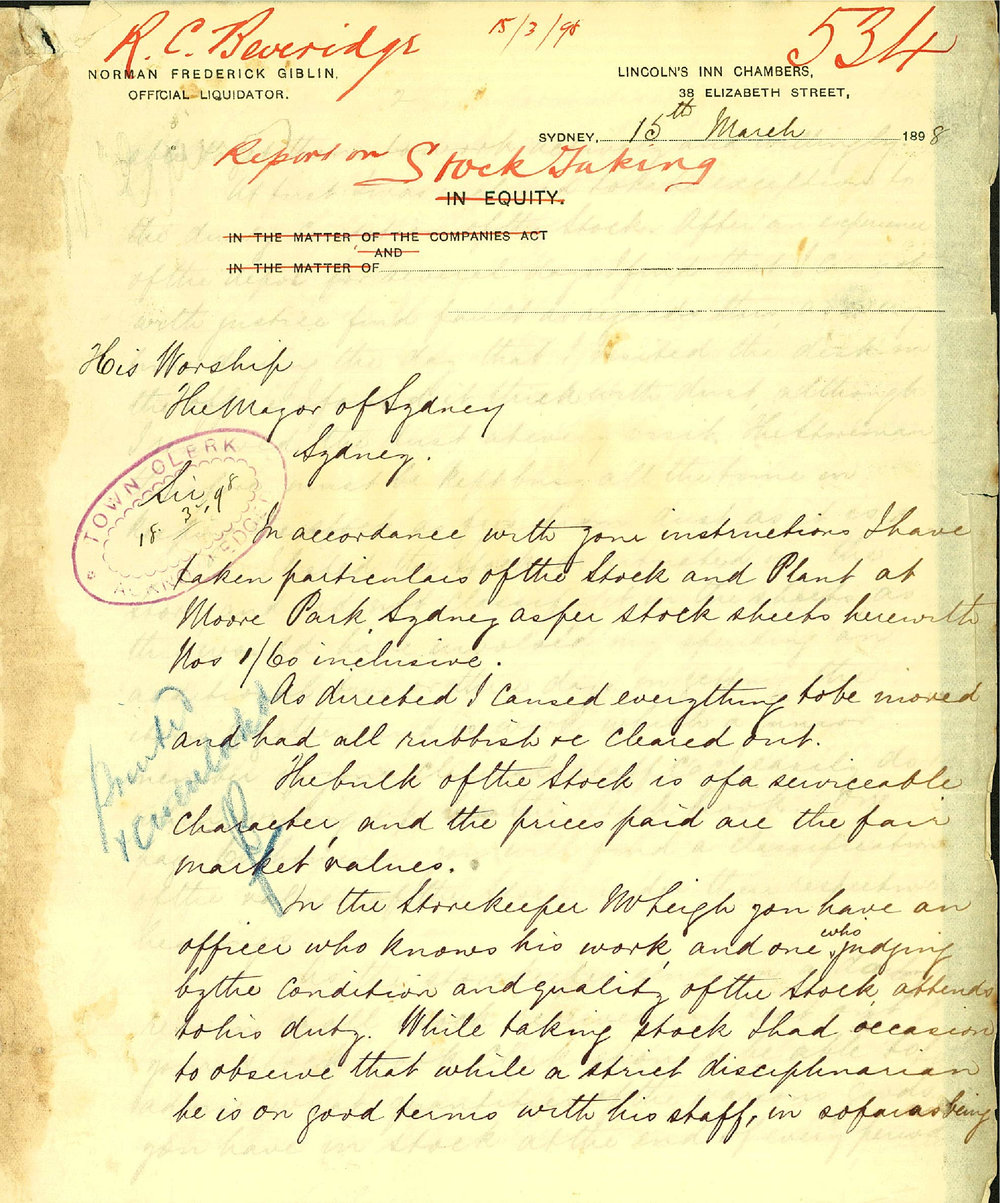 R. C. Beveridge
15/3/98
534
NORMAN FREDERICK GIBLIN,
OFFICIAL LIQUIDATOR.
LINCOLN'S INN CHAMBERS,
38 ELIZABETH STREET,
SYDNEY, 15th March 1898
Report on Stock Taking
IN EQUITY.
IN THE MATTER OF THE COMPANIES ACT
AND
IN THE MATTER OF
His Worship
The Mayor of Sydney
Sydney.
TOWN CLERK
18 3/98
Sir,
In accordance with your instructions I have
taken particulars of the Stock and Plant at
Moore Park, Sydney as per stock sheets herewith
Nos 1/60 inclusive.
As directed I caused everything to be moved
and had all rubbish &c cleared out.
The bulk of the Stock is of a serviceable
character, and the prices paid are the fair
market values.
In the Storekeeper Mr Leigh you have an
officer who knows his work, and one who judging
by the condition and quality of the Stock, attends
to his duty. While taking stock I had occasion
to observe that while a strict disciplinarian
he is on good terms with his staff, in so far as being